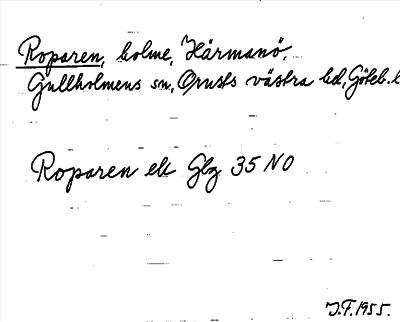 Roparen, holme, Härmanö,
Gullholmens sn, Orusts västra hd, Göteb. l
Roparen ek Glz 35 NO
J.F. 1955.